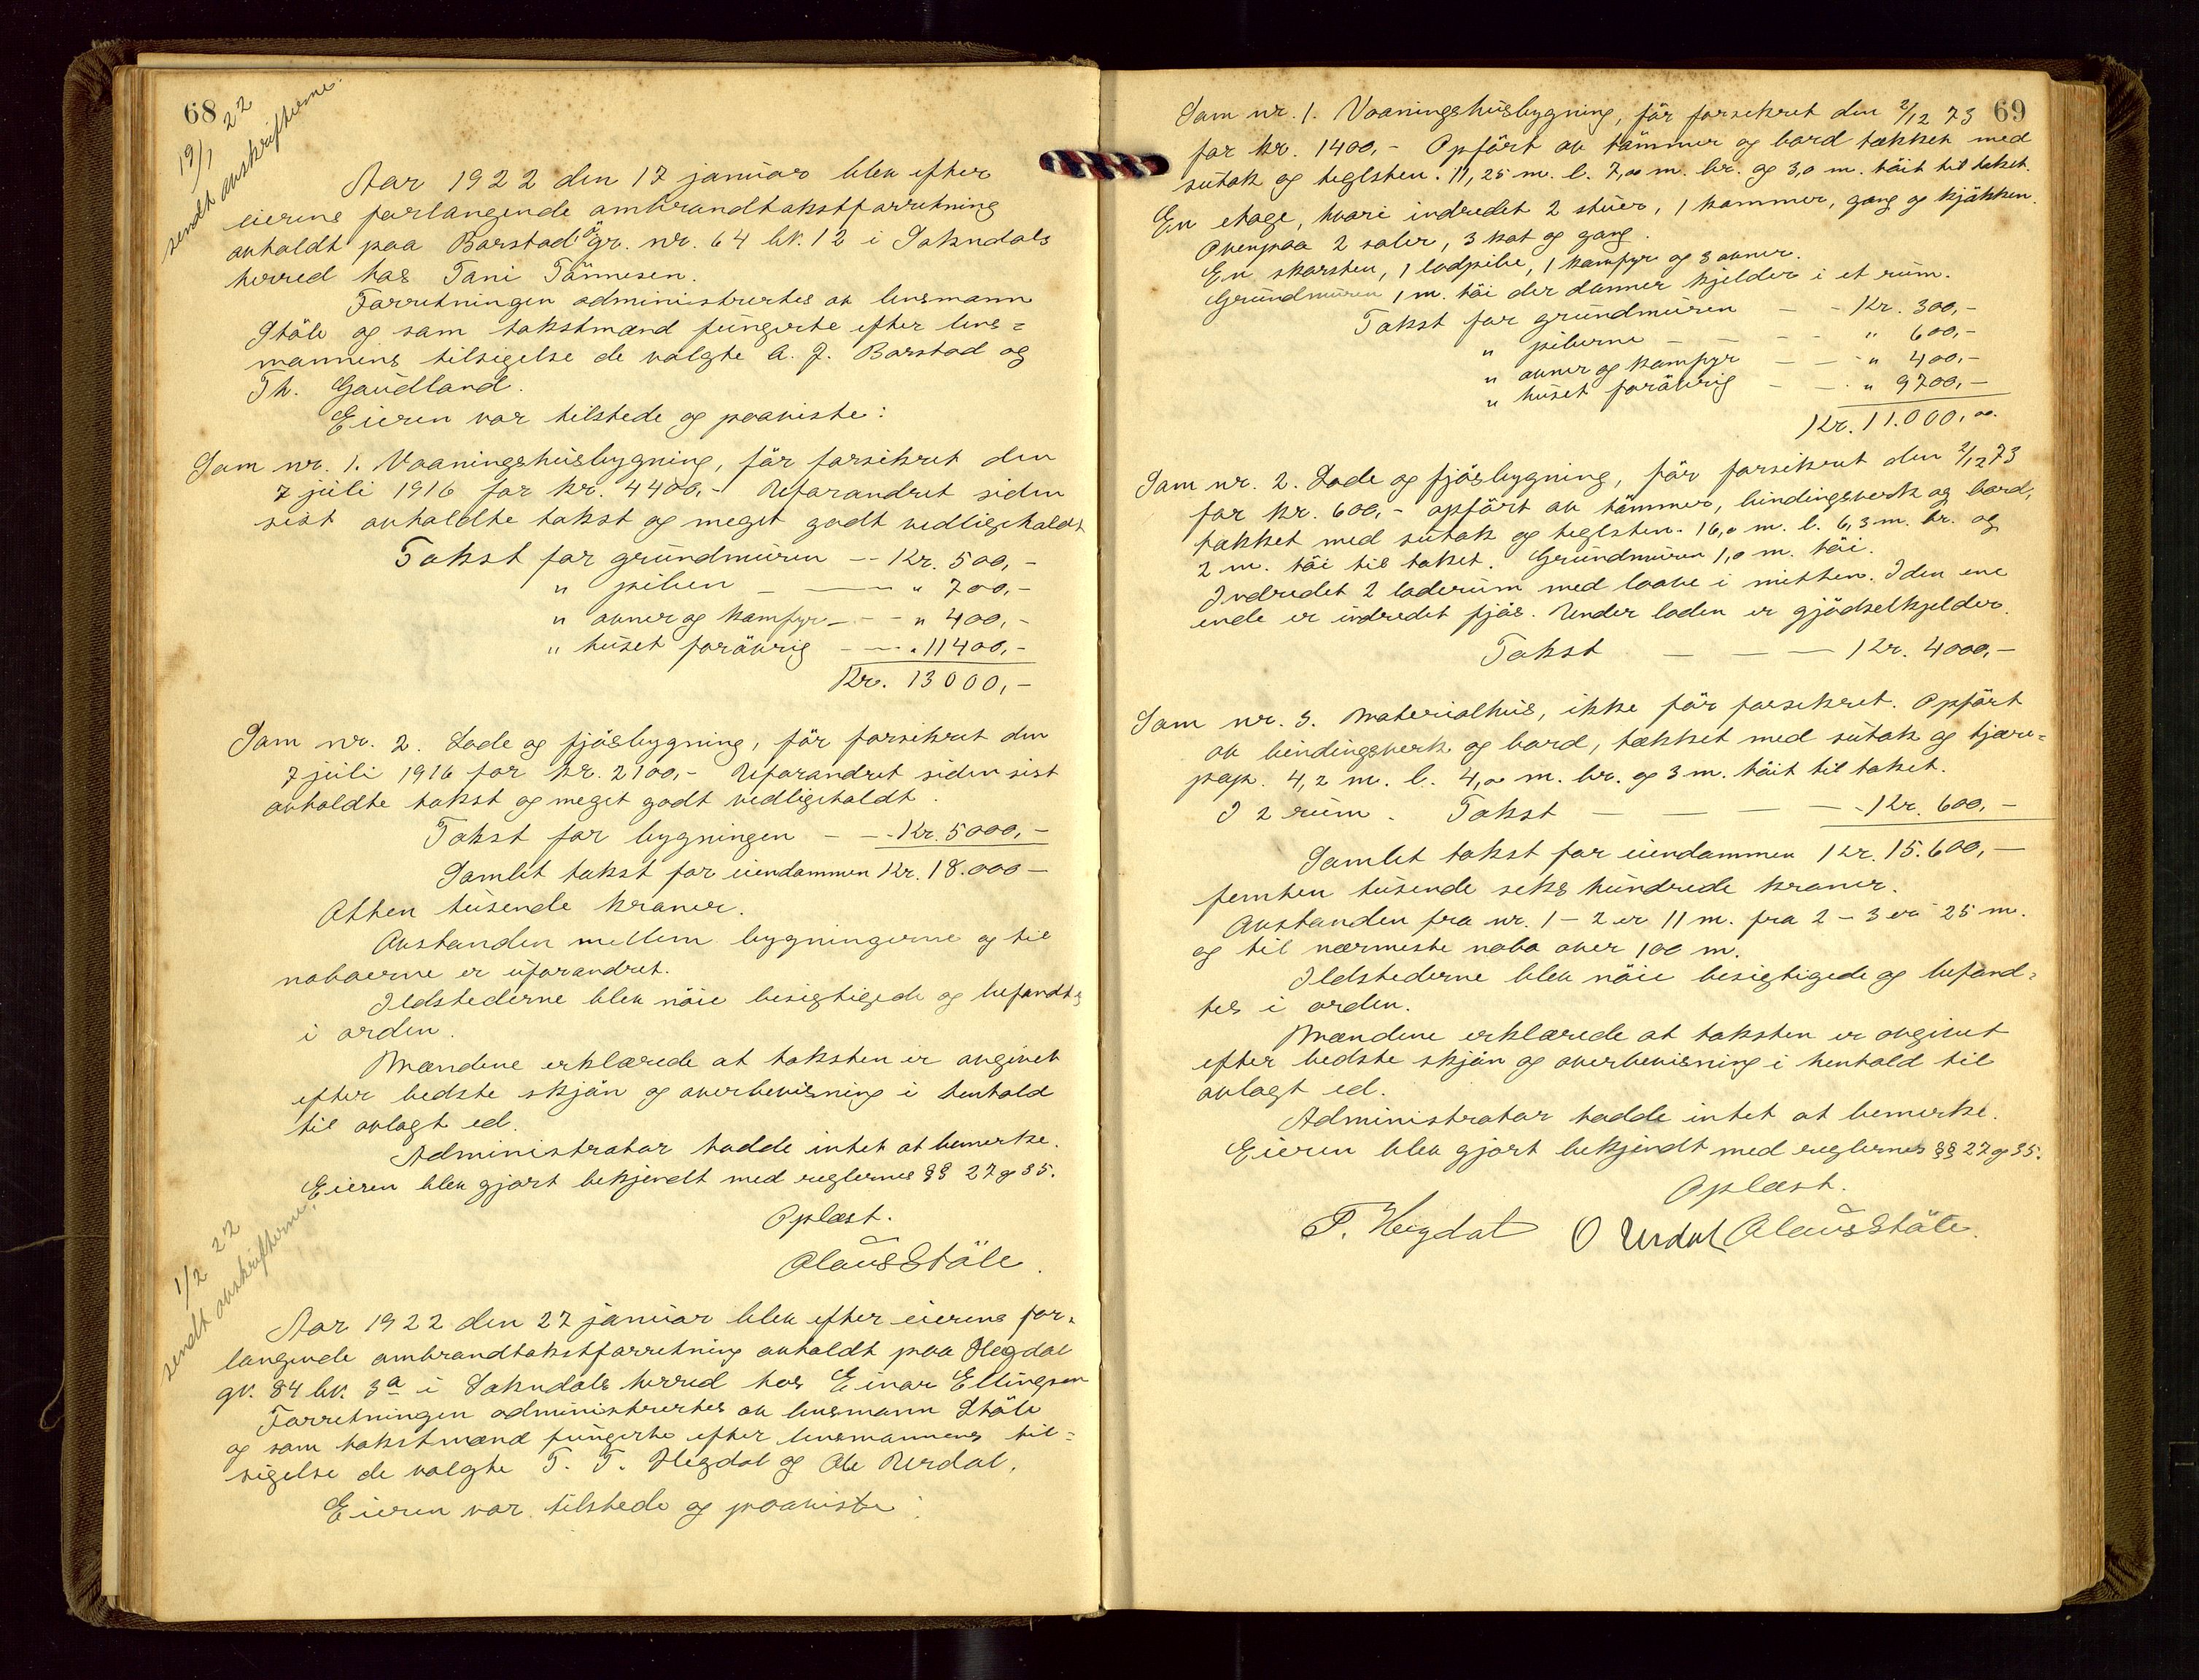 68
19/1 22
sendt avskrifterne.
Aar 1922 den 17 januar blev efter
eierens forlangende ombrandtakstforretning
avholdt paa Barstad gr. nr. 64 bk. 12 i Sokndals
herred hos Toni Tönnesen.
Forretningen administrertes av lensmann
Ståle og som takstmænd fungerte efter lens=
mannens tilsigelse de valgte A. J. Barstad og
Th. Gaudland.
Eieren var tilstede og paaviste:
Som nr. 1. Vaaningshusbygning, för forsikret den
7 juli 1916 for kr. 4400,- Uforandret siden
sist avholdte takst og meget godt vedligeholdt
Takst for grundmuren -- Kr. 500,-
" piben - —— " 700,-
" ovner og komfyr - - - " 400,-
" huset forövrig - — " 11400,-
Kr. 13000,-
Som nr. 2. Lade og fjösbygning, för forsikret den
7 juli 1916 for kr. 2100,- Uforandret siden sist
avholdte takst og meget godt vedligeholdt.
Takst for bygningen - - - Kr. 5000,-
Samlet takst for eiendommen Kr. 18.000 -
Atten tusende kroner.
Avstanden mellem bygningerne og til
naboerne er uforandret.
Ildstederne blev nöie besigtigede og befandtes
i orden.
Mændene erklærede at taksten er avgivet
efter bedste skjön og overbevisning i henhold
til avlagt ed.
Administrator hadde intet at bemerke.
Eieren blev gjort bekjendt med reglernes §§ 27 og 35.
Oplæst.
Olaus Ståle.
1/2 22
sendt avskrifterne.
Aar 1922 den 27 januar blev efter eierens for=
langende ombrandtakstforretning avholdt paa Hegdal
gr. 84 bk. 3a i Sokndals herred hos Einar Ellingsen
Forretningen administrertes av lensmann Ståle
og som takstmænd fungerte efter lensmannens til=
sigelse de valgte T. T. Hegdal og Ole Urdal.
Eieren var tilstede og paaviste:
69
Som nr. 1. Vaaningshusbygning, för forsikret den 2/12 73
for kr. 1400,- Opfört av tömmer og bord tækket med
sutak og teglsten. 11,25 m. l. 7,00 m. br. og 3,0 m. höit til taket.
En etage, hvori indredet 2 stuer, 1 kammer, gang og kjökken.
Ovenpaa 2 saler, 3 kot og gang.
En skorsten, 1 lodpibe, 1 komfyr og 3 ovner.
Grundmuren 1 m. höi der danner kjelder i et rum.
Takst for grundmuren - - Kr. 300,-
" piberne - - - - " 600,-
" ovner og komfyr - - - " 400,-
" huset forövrig - - - " 9700,-
Kr. 11.000,00.
Som nr. 2. Lade og fjösbygning, för forsikret den 2/12 73
for kr. 600,- opfört av tömmer, bindingsverk og bord,
takket med sutak og teglsten. 16,0 m. l. 6,3 m. br. og
2 m. höi til taket. Grundmuren 1,0 m. höi.
Indredet 2 laderum med laave i mitten. I den ene
ende er indredet fjös. Under laden er gjödselkjelder.
Takst - - - Kr. 4000,-
Som nr. 3. Materialhus, ikke för forsikret. Opfört
av bindingsverk og bord, tækket med sutak og tjære=
pap. 4,2 m. l. 4,0 m. br. og 3 m. höit til taket.
I 2 rum. Takst - - - - Kr. 600,-
Samlet takst for eiendommen Kr. 15.600,-
femten tusende seks hundrede kroner.
Avstanden fra nr. 1 - 2 er 11 m. fra 2 - 3 er 25 m.
og til nærmeste nabo over 100 m.
Ildstederne blev nöie besigtigede og befand=
tes i orden.
Mændene erklærede at taksten er avgivet
efter bedste skjön og overbevisning i henhold til
avlagt ed.
Administrator hadde intet at bemerke.
Eieren blev gjort bekjendt med reglernes §§ 27 og 35.
Oplæst.
T. Hegdal O Urdal Olaus Ståle.